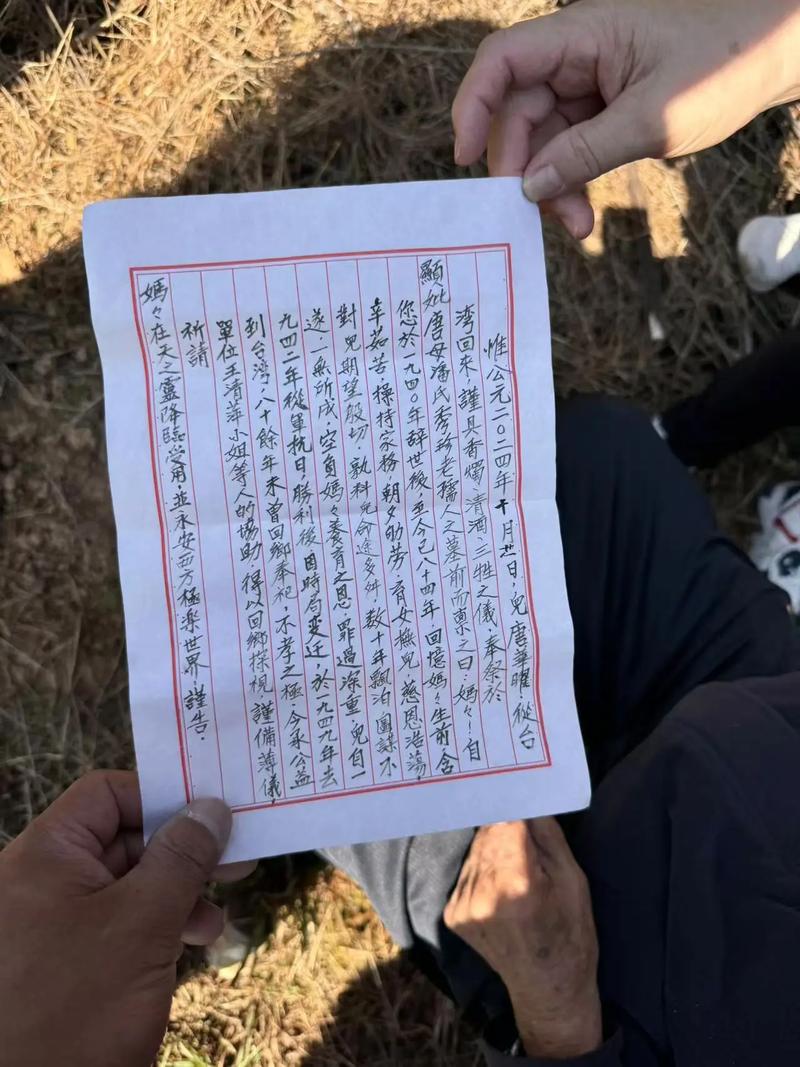 惟公元二〇二四年十月廿日，兒唐華曜，從台
灣回來，謹具香燭清酒三牲之儀，奉祭於
顯妣唐母潘氏秀珍老孺人之墓前而稟之曰：媽々！自
您於一九四〇年辭世後，至今已八十四年，回憶媽々生前含
辛茹苦，操持家務，朝夕劬勞，育女撫兒，慈恩浩蕩
對兒期望殷切，孰料兒命途多舛，數十年飄泊，圖謀不
遂，一無所成，空負媽々養育之恩，罪過深重，兒自一
九四二年從軍抗日，勝利後，因時局變迁，於一九四九年去
到台灣，八十餘年未曾回鄉奉祀，不孝之極，今承公益
單位王清萍小姐等人的協助，得以回鄉探視，謹備薄儀，
祈請
媽々在天之靈降臨受用，並永安西方極樂世界，謹告。